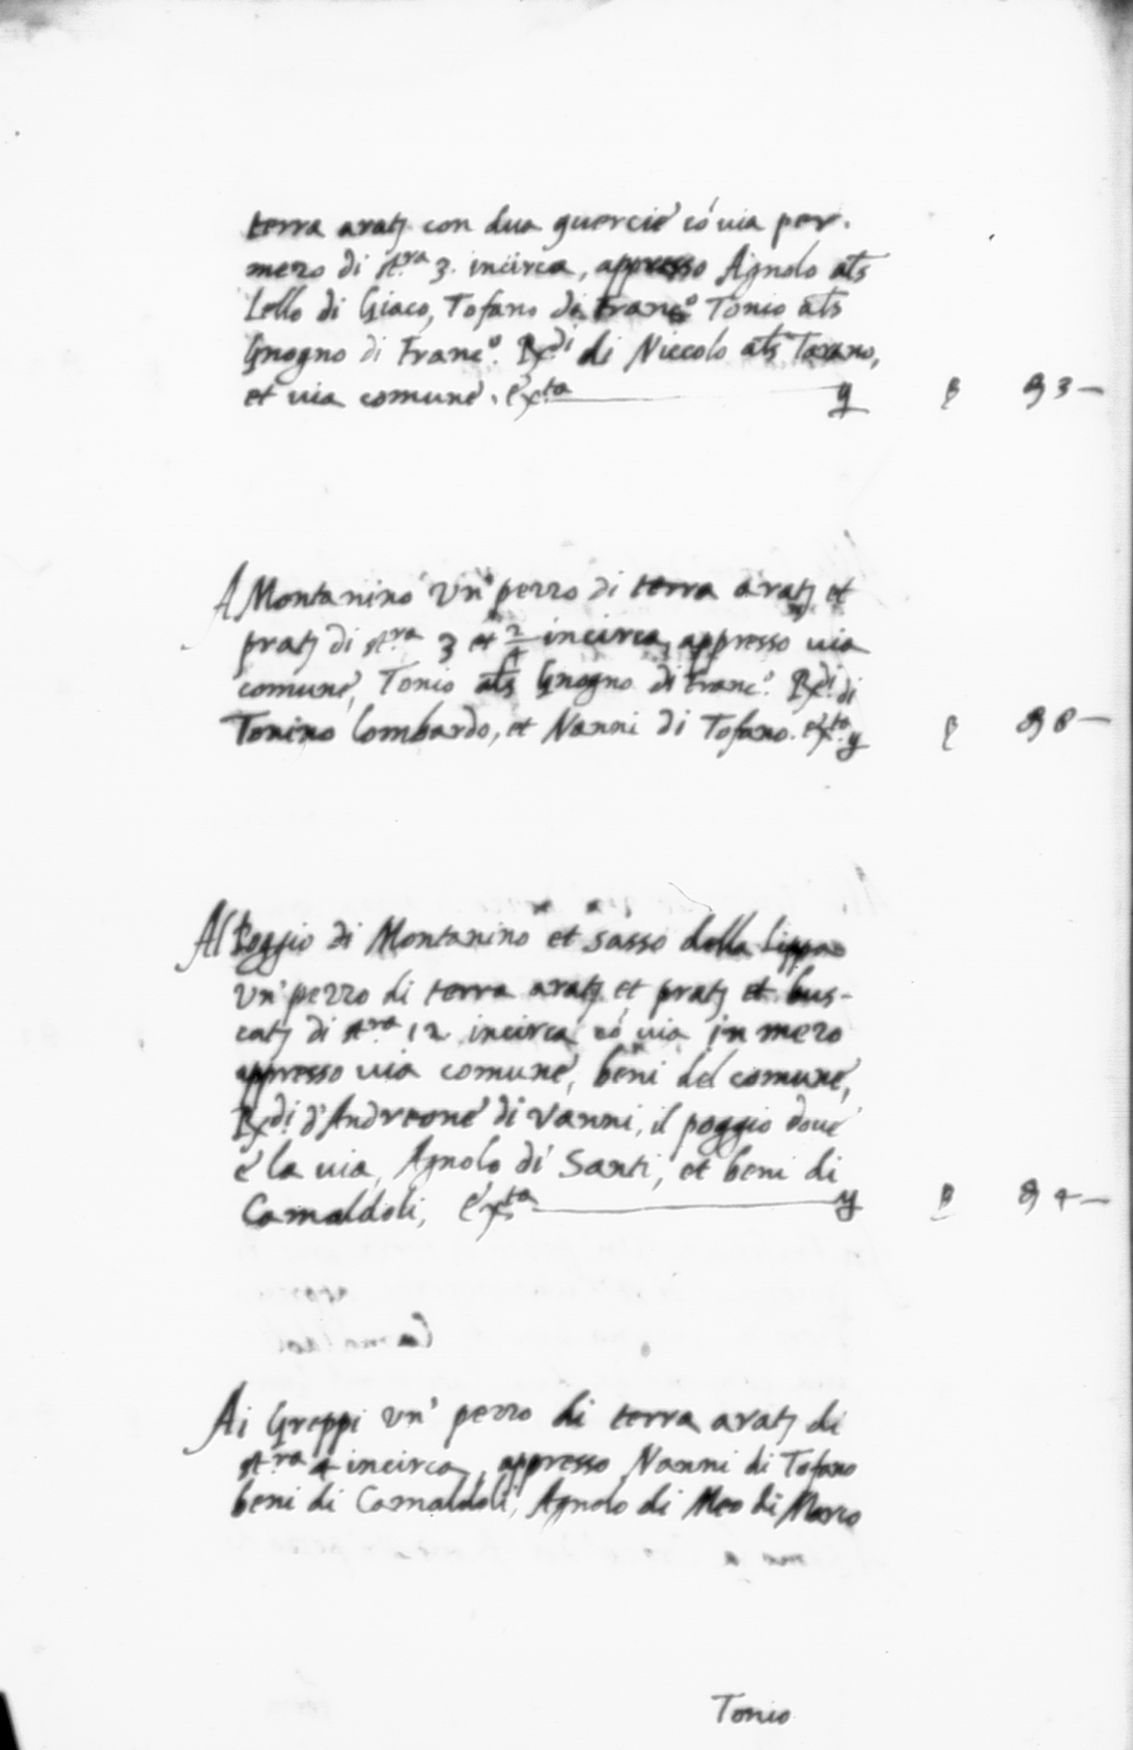 terra aratꝫ con dua quercie có via per.
mezo di st.ra 3. incirca, appresso Agnolo als
Lello di Giaco, Tofano di Franc.º Tonio als
Gnogno di Franc.º Rxdi di Niccolo als
et via comune. Exta
A Montanino un' pezzo di terra aratꝫ et
pratꝫ di st.ra 3 et incirca, appresso via
comune, Tonio als Gnogno di Franc.º Rxdi di
Tonino Lombardo, et Nanni di Tofano. Exta
Al Poggio di Montanino et sasso della Lippa
Un' pezzo di terra aratꝫ et pratꝫ et bus-
catꝫ di st.ra 12 incirca có via in mezo
appresso via comune, beni del comune,
Rxdi d'Andreone di Vanni, il poggio dove
è la via, Agnolo di Santi, et beni di
Camaldoli, Exta
Ai Greppi un' pezzo di terra aratꝫ di
st.ra 4 incirca, appresso Nanni di Tofano
beni di Camaldoli, Agnolo di Meo di Marco
Tonio